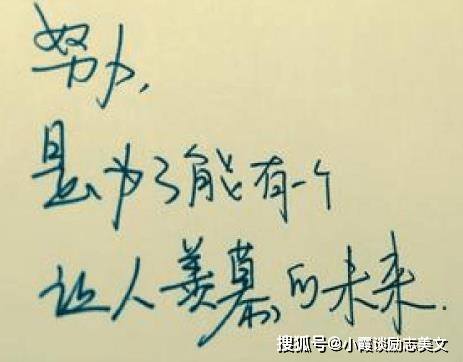 努力,
是为了能有一个
让人羡慕的未来.
搜狐号@小霞谈励志美文